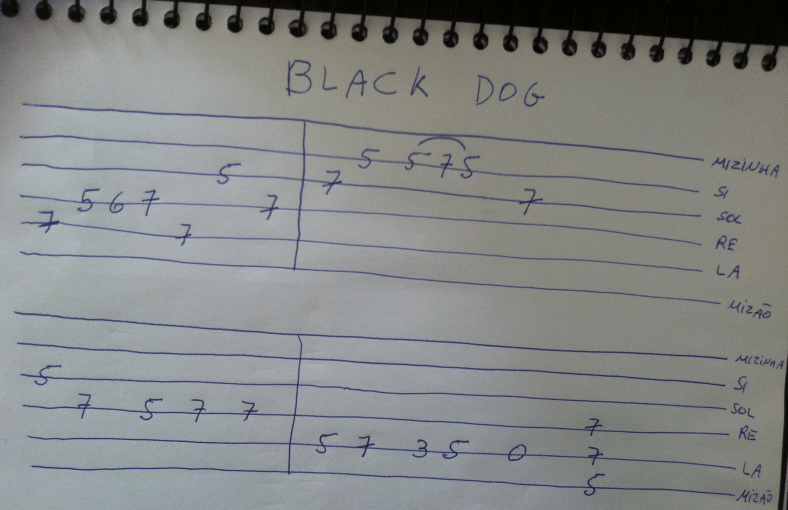 BLACK DOG
MIZINHA
5 5 7 5 SI
5 7 7 SOL
5 6 7 7 RE
7 7 LA
MIZÃO
MIZINHA
SI
5 SOL
7 5 7 7 7 RE
5 7 3 5 0 7 LA
5 MIZÃO